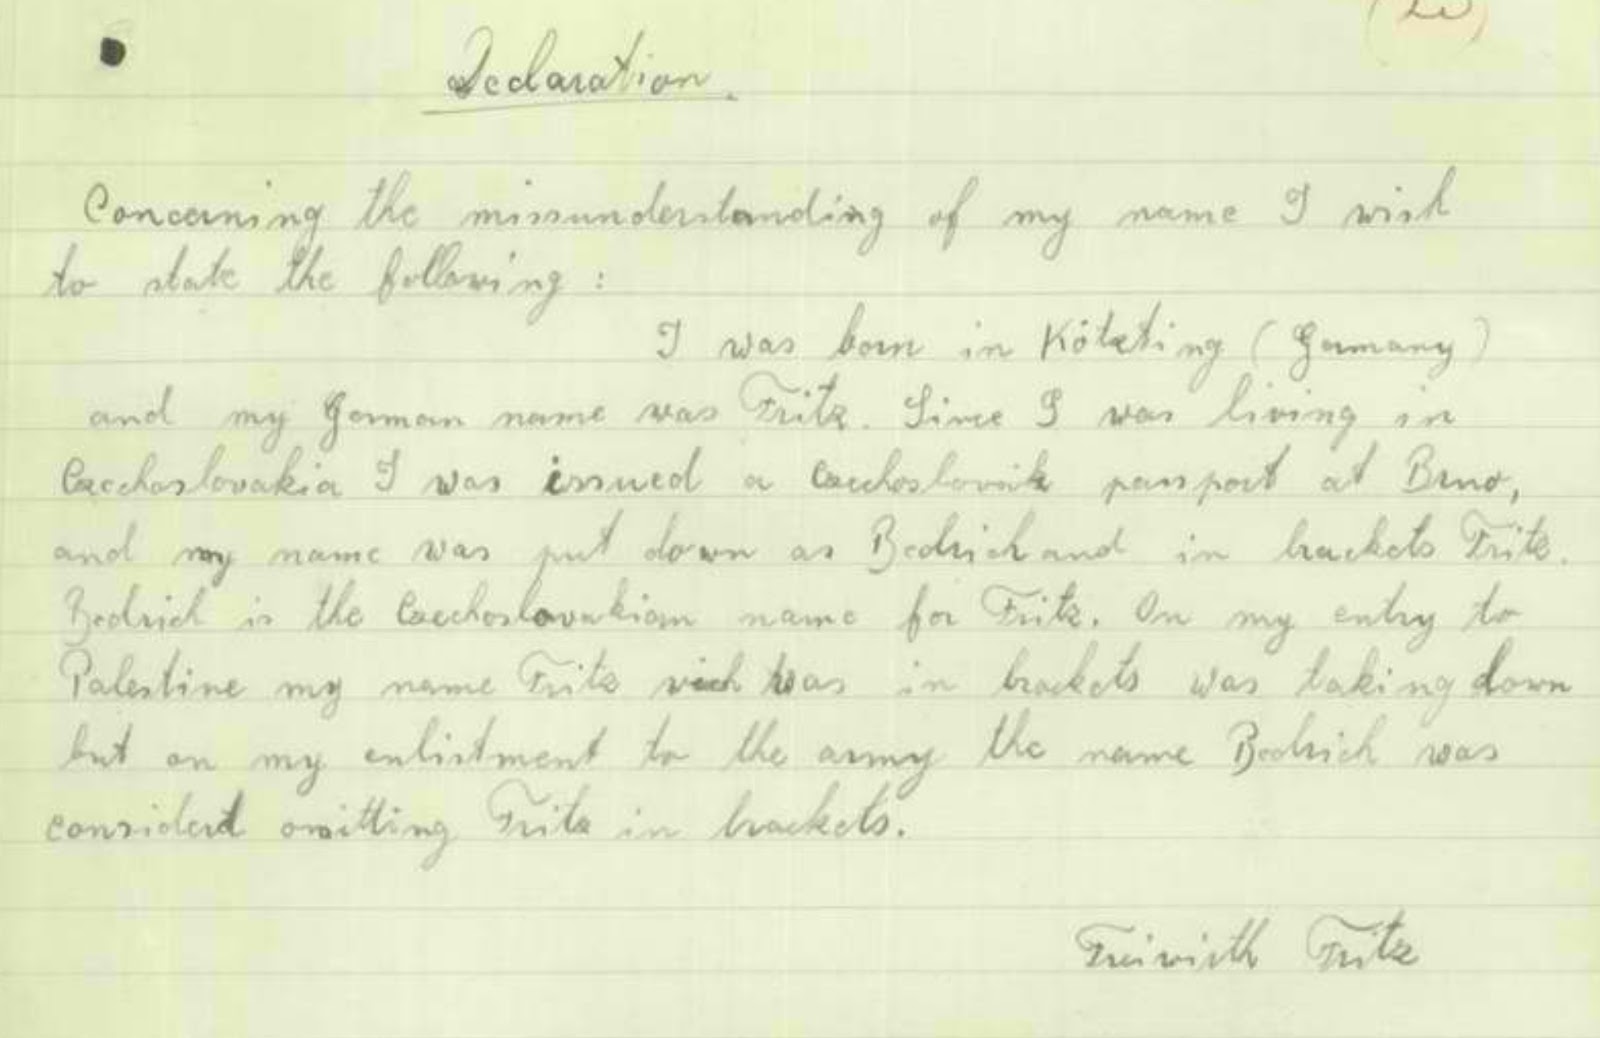 Declaration.
Concerning the missunderstanding of my name I wish
to state the following :
I was born in Kötzting (Germany)
and my German name was Fritz. Since I was living in
Czechoslovakia I was issued a Czechoslovak passport at Brno,
and my name was put down as Bedrich and in brackets Fritz.
Bedrich is the Czechoslovakian name for Fritz. On my entry to
Palestine my name Fritz wich was in brackets was taking down
but on my enlistment to the army the name Bedrich was
considert omitting Fritz in brackets.
Freiwirth Fritz